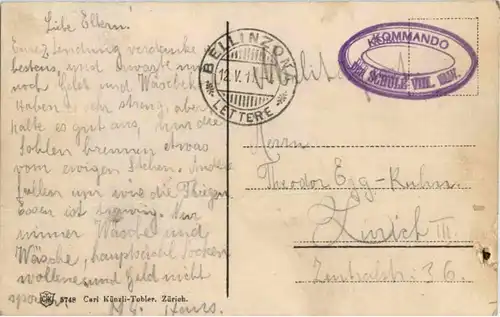 Liebe Eltern!
Eure Sendung verdanke
bestens, und erwarte nur
noch Geld und Wäsche.
Haben es sehr streng, aber
halte es gut aus, nur die
Sohlen brennen etwas
vom ewigen Stehen. Andere
fallen um wie die Fliegen
Essen ist
immer Wäsche und
Wäsche, hauptsächl. Socken
wollene und Geld nicht
sparen. Hans.
BELLINZONA
12. V. 1
LETTERE
Militär
KOMMANDO
SCHULE VIII.
Herrn
Theodor Egg-Kuhn.
Zürich III.
Zentralstr. 36.
5748 Carl Künzli-Tobler, Zürich.